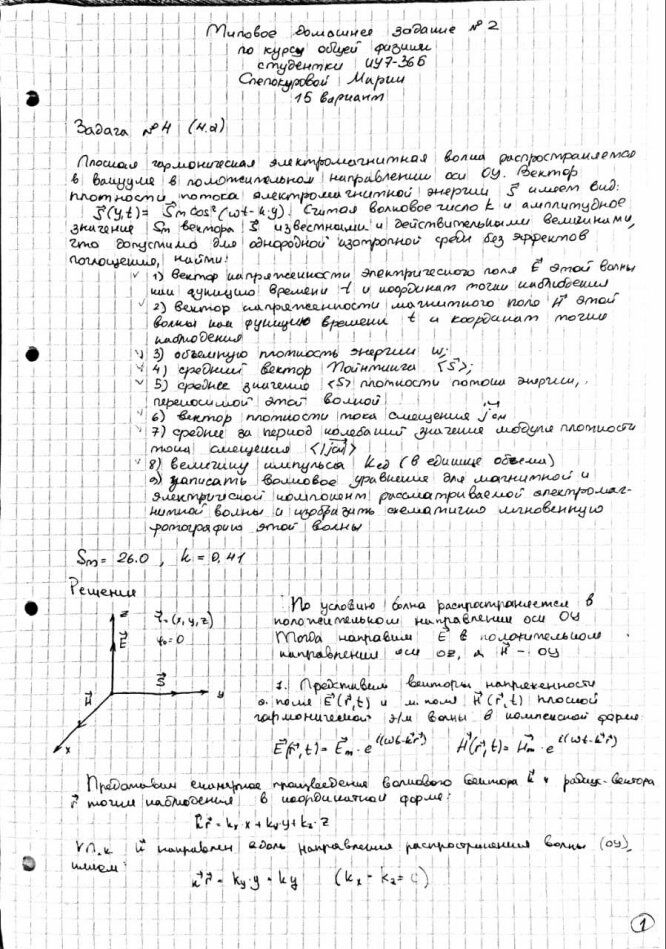 Типовое домашнее задание №2
по курсу общей физики
студентки ИУ7-36Б
Слепокуровой Марии
15 вариант
Задача №4 (4.2)
Плоская гармоническая электромагнитная волна распространяется
в вакууме в положительном направлении оси ОУ. Вектор
плотности потока электромагнитной энергии S⃗ имеет вид:
S⃗(y,t) = S⃗m cos²(ωt - k·y). Считая волновое число k и амплитудное
значение Sm вектора S⃗ известными и действительными величинами,
что допустимо для однородной изотропной среды без эффектов
поглощения, найти:
1) вектор напряженности электрического поля E⃗ этой волны
как функцию времени t и координат точки наблюдения
2) вектор напряженности магнитного поля H⃗ этой
волны как функцию времени t и координат точки
наблюдения
3) объемную плотность энергии w;
4) средний вектор Пойнтинга <S⃗>;
5) среднее значение <S> плотности потока энергии,
переносимой этой волной
6) вектор плотности тока смещения j⃗см
7) среднее за период колебаний значение модуля плотности
тока смещения <|j⃗см|>
8) величину импульса Kед (в единице объема)
9) записать волновое уравнение для магнитной и
электрической компонент рассматриваемой электромаг-
нитной волны и изобразить схематично мгновенную
фотографию этой волны
Sm = 26.0 , k = 0,41
Решение
z
r⃗ = (x, y, z)
E⃗
φ₀=0
S⃗
y
H⃗
x
По условию волна распространяется в
положительном направлении оси ОУ
Тогда направим E⃗ в положительном
направлении оси OZ, а H⃗ -
1. Представим векторы напряженности
э. поля E⃗(r⃗,t) и м. поля H⃗(r⃗,t) плоской
гармонической э/м волны в комплексной форме:
E⃗(r⃗,t) = E⃗m · e^i(ωt-k⃗r⃗) H⃗(r⃗,t) = H⃗m · e^i(ωt-k⃗r⃗)
Представим скалярное произведение волнового вектора k⃗ и радиус-вектора
r⃗ точки наблюдения в координатной форме:
k⃗r⃗ = kx·x + ky·y + kz·z
Т.к. k⃗ направлен вдоль направления распространения волны (OY),
имеем:
k⃗r⃗ = ky·y = ky (kx = kz = 0)
1